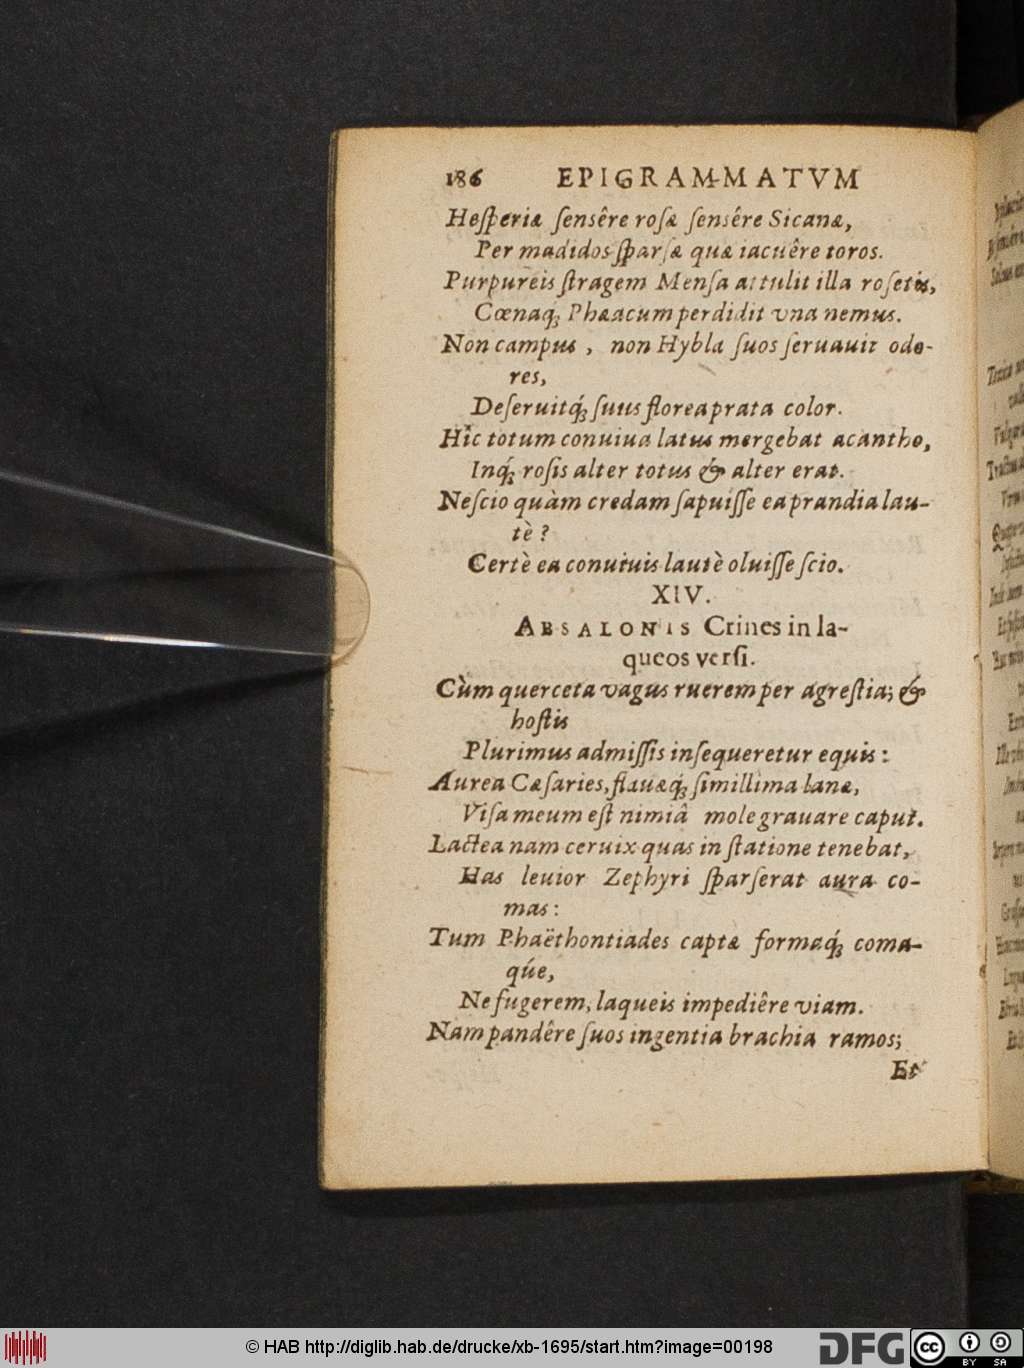 186 EPIGRAMMATVM
Heſperiæ ſensêre roſæ ſensêre Sicanæ,
Per madidos ſparſæ quæ iacuêre toros.
Purpureis ſtragem Menſa attulit illa roſetis,
Cœnaq́; Phæacum perdidit vna nemus.
Non campus, non Hybla ſuos ſeruauit odo-
res,
Deſeruitq́; ſuus florea prata color.
Hîc totum conuiua latus mergebat acantho,
Inq́; roſis alter totus & alter erat.
Neſcio quàm credam ſapuiſſe ea prandia lau-
tè?
Certè ea conuiuis lautè oluiſſe ſcio.
XIV.
ABSALONIS Crines in la-
queos verſi.
Cùm querceta vagus ruerem per agreſtia; &
hoſtis
Plurimus admiſſis inſequeretur equis:
Aurea Cæſaries, flauæq́; ſimillima lanæ,
Viſa meum eſt nimiâ mole grauare caput.
Lactea nam ceruix quas in ſtatione tenebat,
Has leuior Zephyri ſparſerat aura co-
mas:
Tum Phaëthontiades captæ formaq́; coma-
qúe,
Ne fugerem, laqueis impediêre viam.
Nam pandêre ſuos ingentia brachia ramos;
Et
© HAB http://diglib.hab.de/drucke/xb-1695/start.htm?image=00198
DFG
cc BY SA